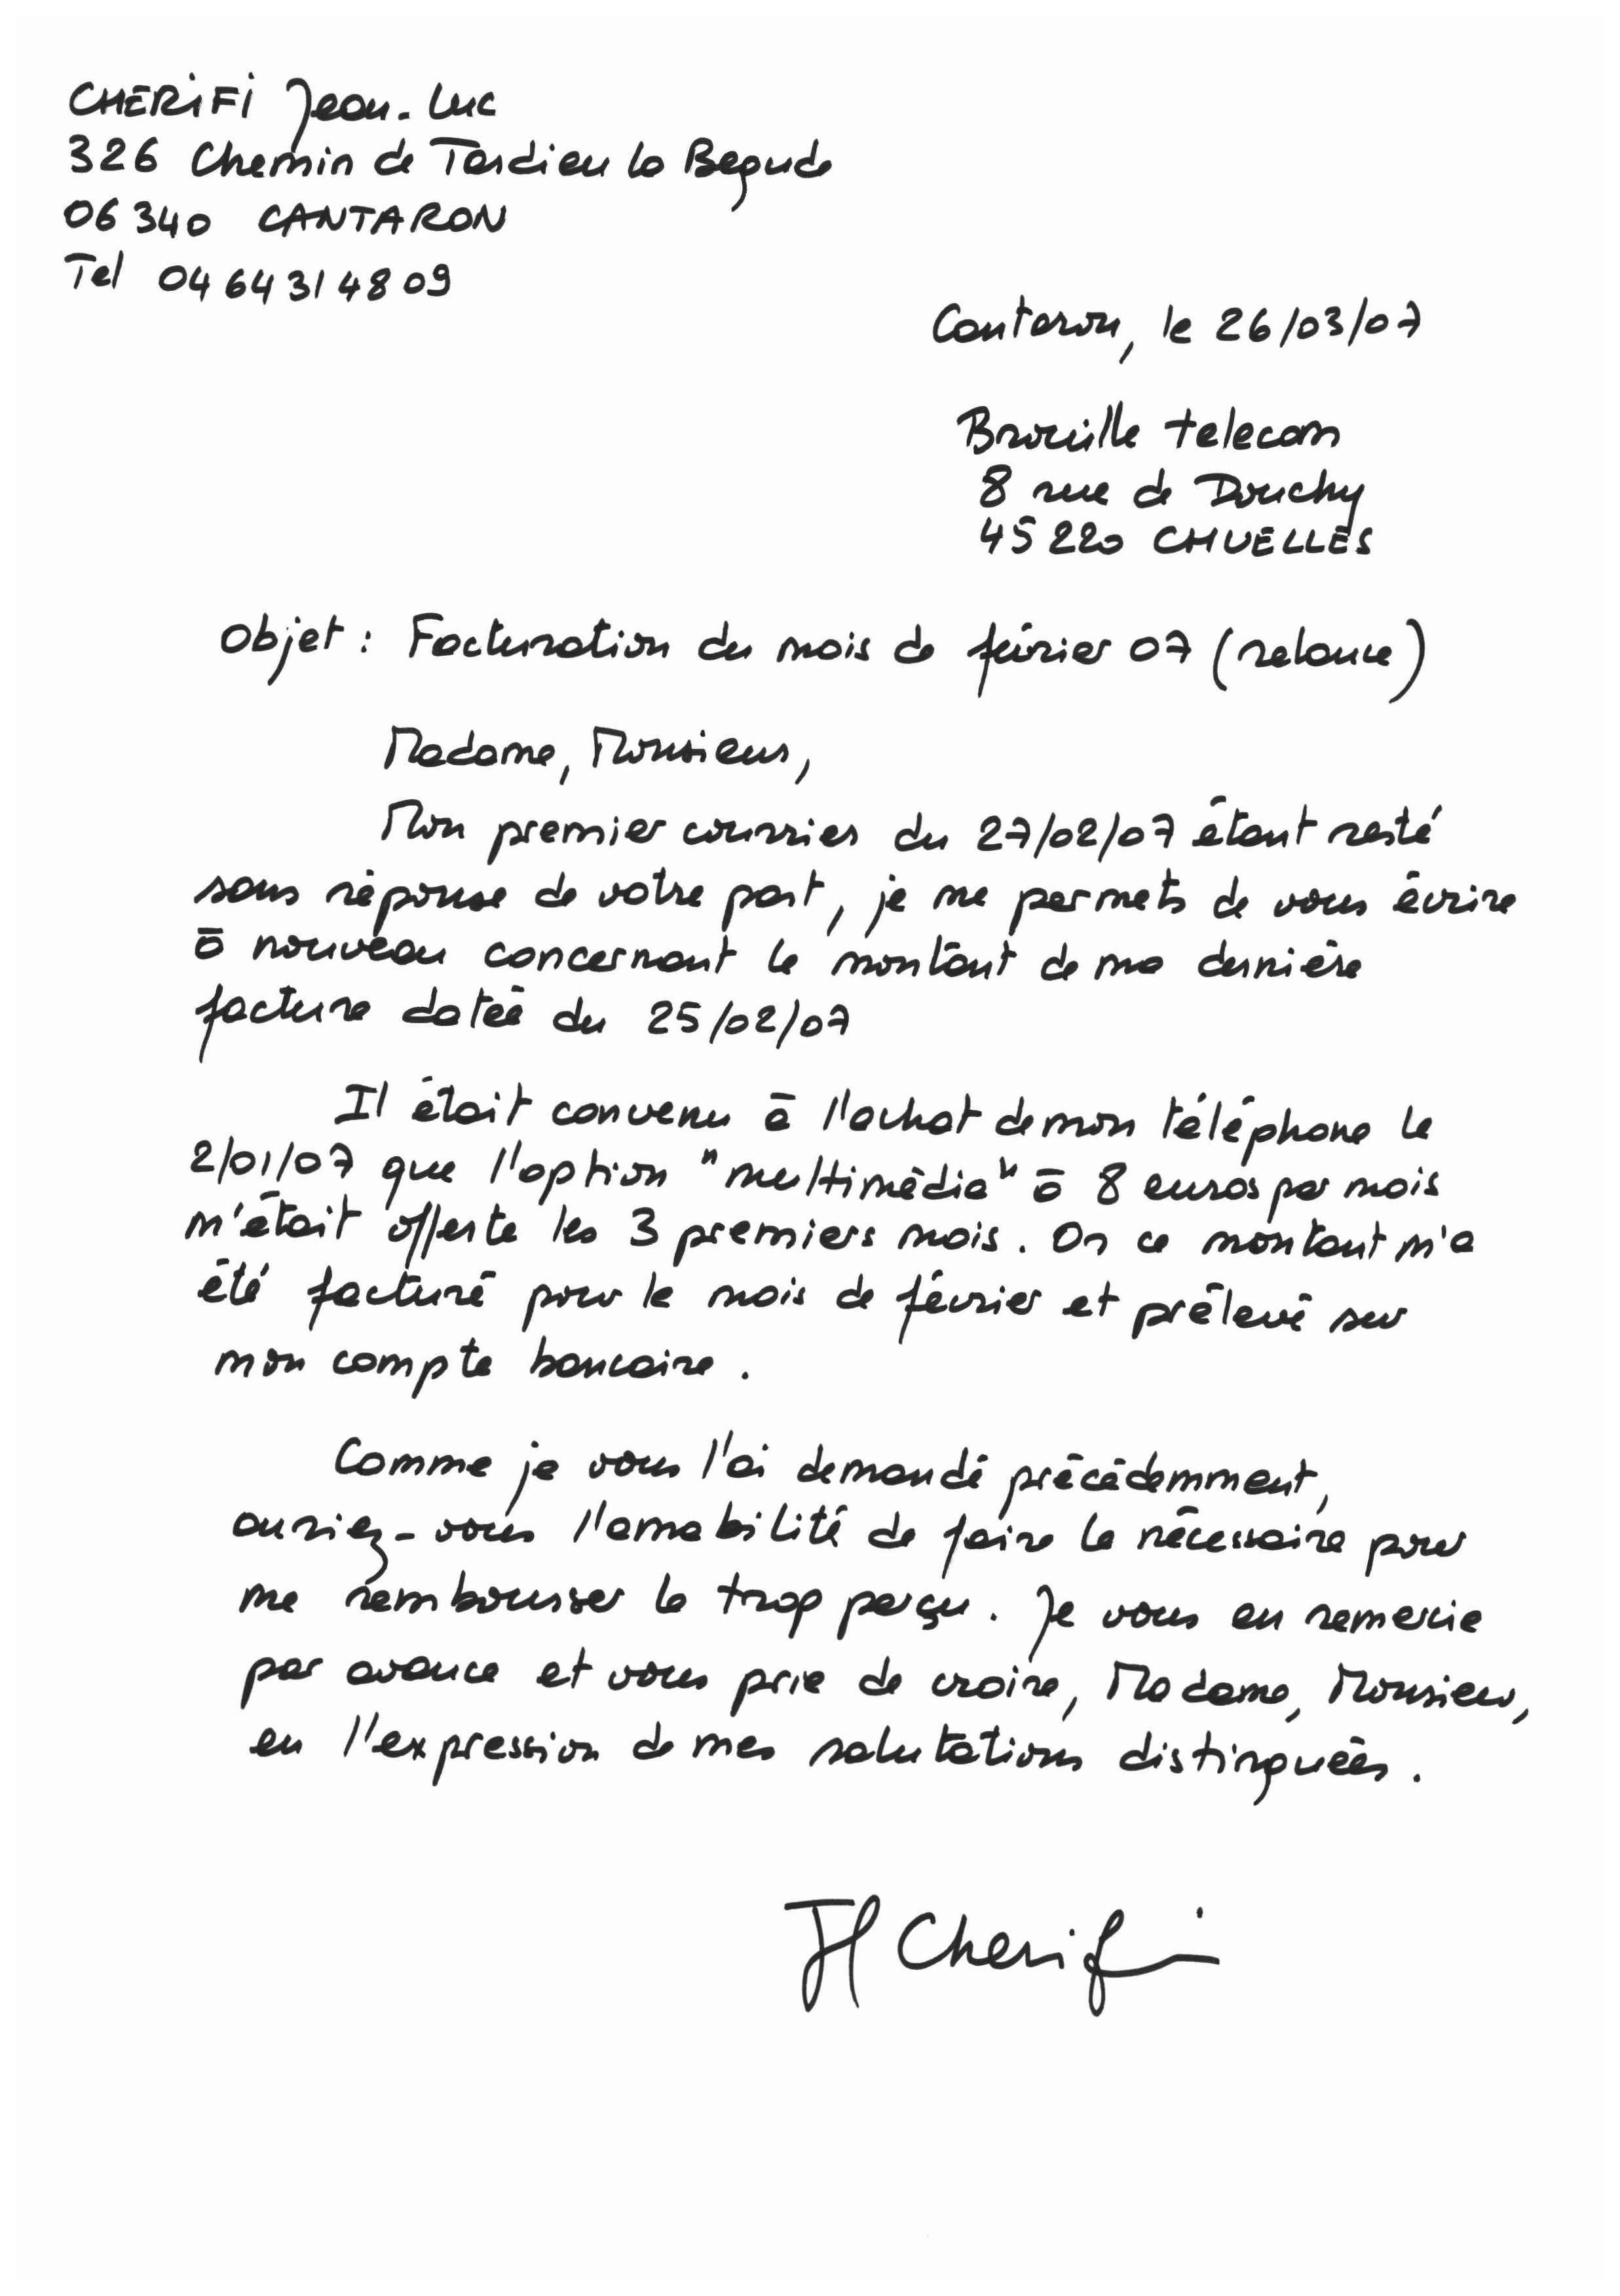 CHERIFI Jean-Luc
326 Chemin de Tardieu la Begude
06340 CANTARON
Tel 04 64 31 48 09
Cantaron, le 26/03/07
Brouille telecom
8 rue de Douchy
45220 CHUELLES
Objet : Facturation du mois de février 07 (relance)
Madame, Monsieur,
Mon premier courrier du 27/02/07 étant resté
sans réponse de votre part, je me permets de vous écrire
à nouveau concernant le montant de ma dernière
facture datée du 25/02/07
Il était convenu à l'achat de mon téléphone le
2/01/07 que l'option "multimédia" à 8 euros par mois
m'était offerte les 3 premiers mois. Or ce montant m'a
été facturé pour le mois de février et prélevé sur
mon compte bancaire.
Comme je vous l'ai demandé précédemment,
auriez-vous l'amabilité de faire le nécessaire pour
me rembourser le trop perçu. Je vous en remercie
par avance et vous prie de croire, Madame, Monsieur,
en l'expression de mes salutations distinguées.
JL Cherifi